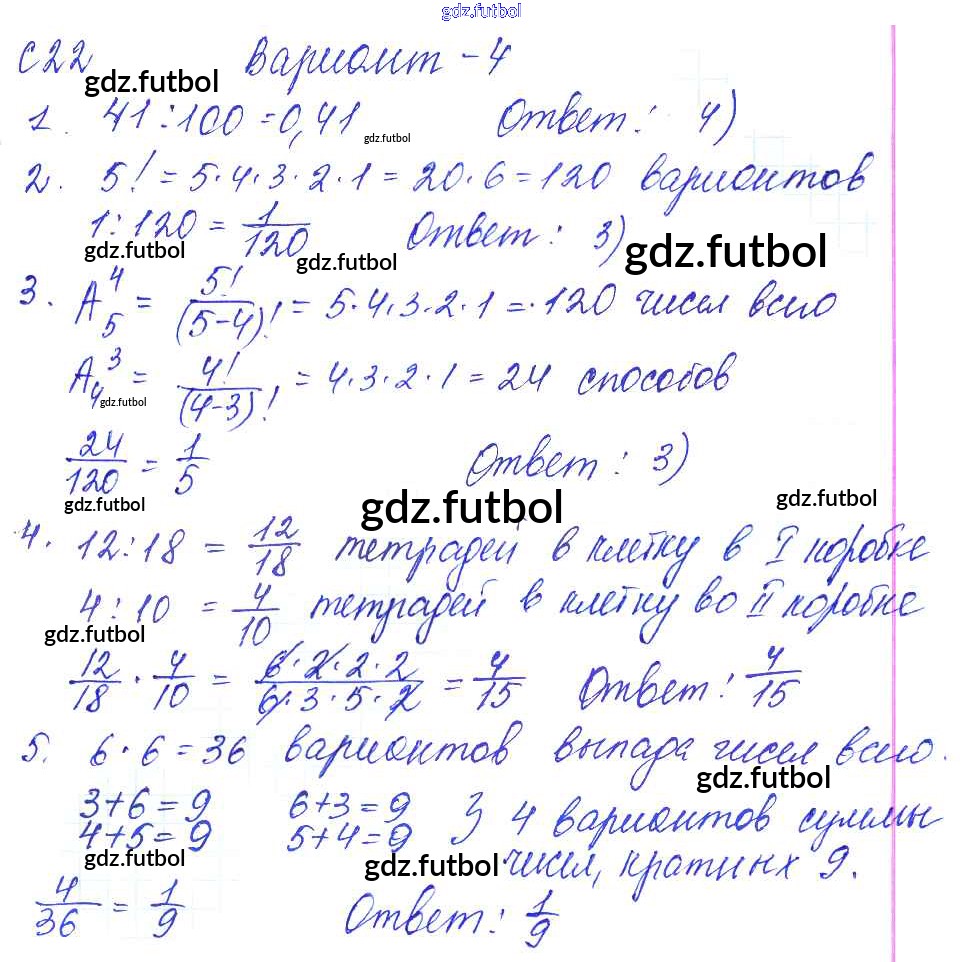 gdz.futbol
С22 Вариант - 4
gdz.futbol
1. 41 : 100 = 0,41 Ответ: 4)
gdz.futbol
2. 5! = 5·4·3·2·1 = 20·6 = 120 вариантов
1 : 120 = 1/120 Ответ: 3)
gdz.futbol gdz.futbol gdz.futbol
3. A₅⁴ = 5!/(5-4)! = 5·4·3·2·1 = 120 чисел всего
A₄³ = 4!/(4-3)! = 4·3·2·1 = 24 способов
gdz.futbol
24/120 = 1/5 Ответ: 3)
gdz.futbol gdz.futbol gdz.futbol
4. 12 : 18 = 12/18 тетрадей в клетку в I коробке
4 : 10 = 4/10 тетрадей в клетку во II коробке
gdz.futbol
12/18 · 4/10 = 6·2·2·2/6·3·5·2 = 4/15 Ответ: 4/15
5. 6·6 = 36 вариантов выпада чисел всего.
gdz.futbol
3+6=9 6+3=9 } 4 варианта суммы
4+5=9 5+4=9 чисел, кратных 9.
gdz.futbol gdz.futbol
4/36 = 1/9 Ответ: 1/9